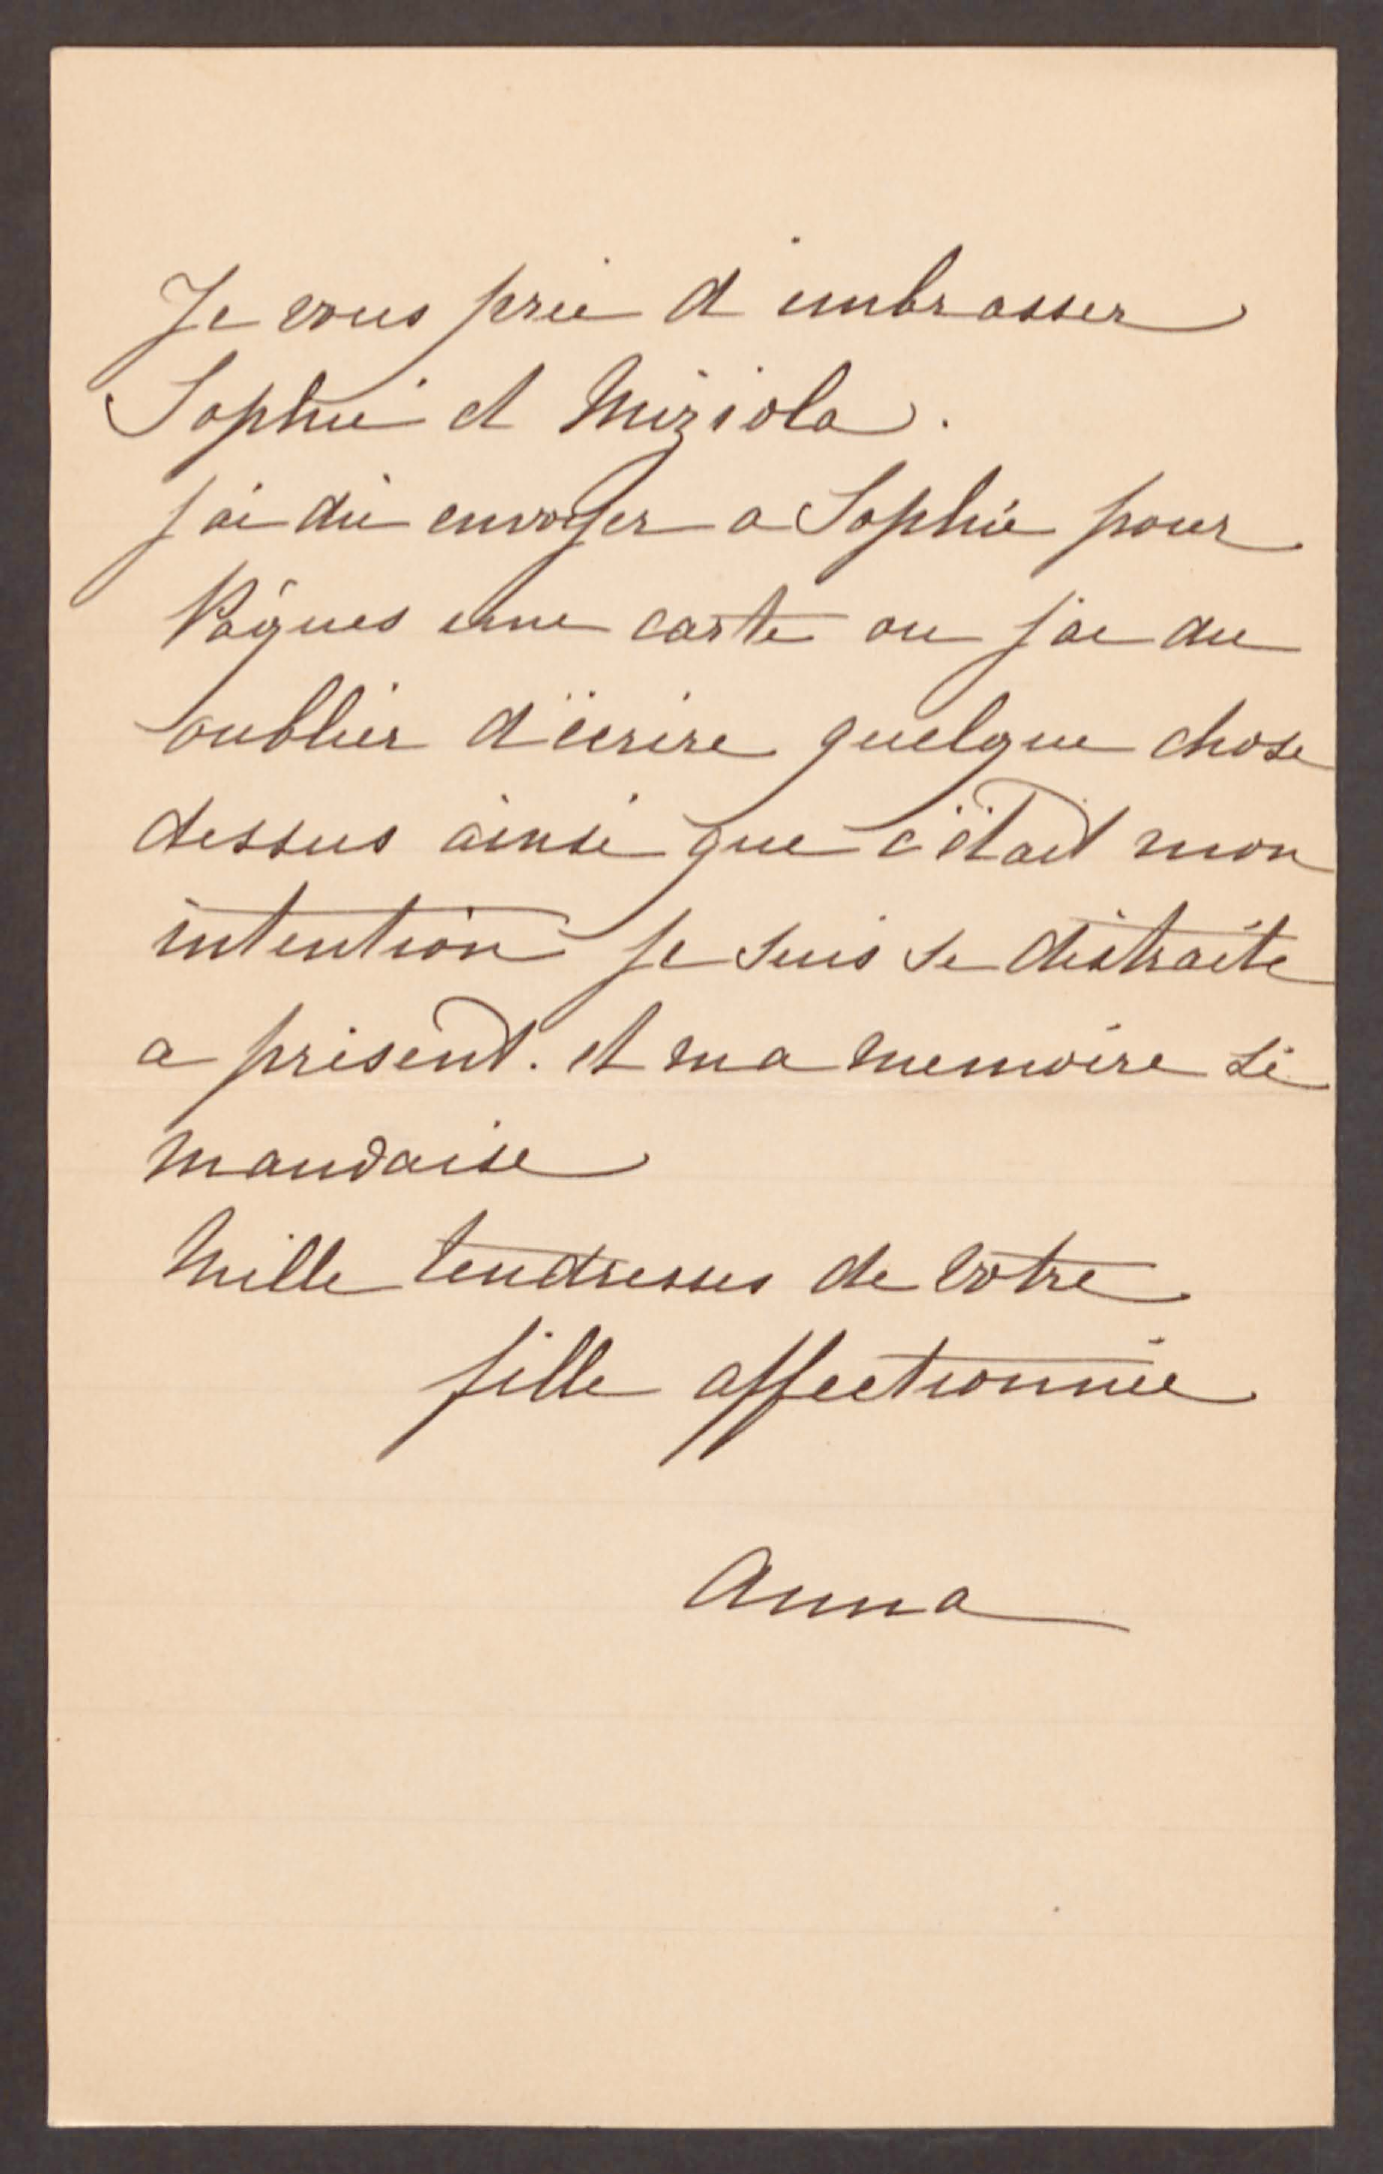 Je vous prie d'embrasser
Sophie et Miziola.
j'ai dû envoyer a Sophie pour
Pâques une carte ou j'ai du
oublier d'écrire quelque chose
dessus ainsi que c'était mon
intention je suis si distraite
a présent. et ma memoire si
mauvaise
Mille tendresses de votre
fille affectionnée
Anna